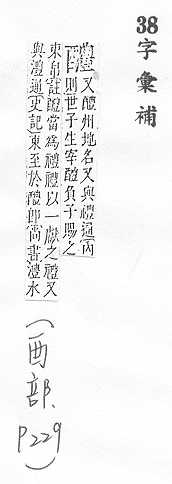 38字彙補
醴 又醴州地名又與禮通〔內
則〕世子生宰醴負子賜之
束帛〔註〕醴當爲禮禮以一獻之禮又
與澧通〔史記〕東至於醴卽尚書澧水
(酉部. P229)